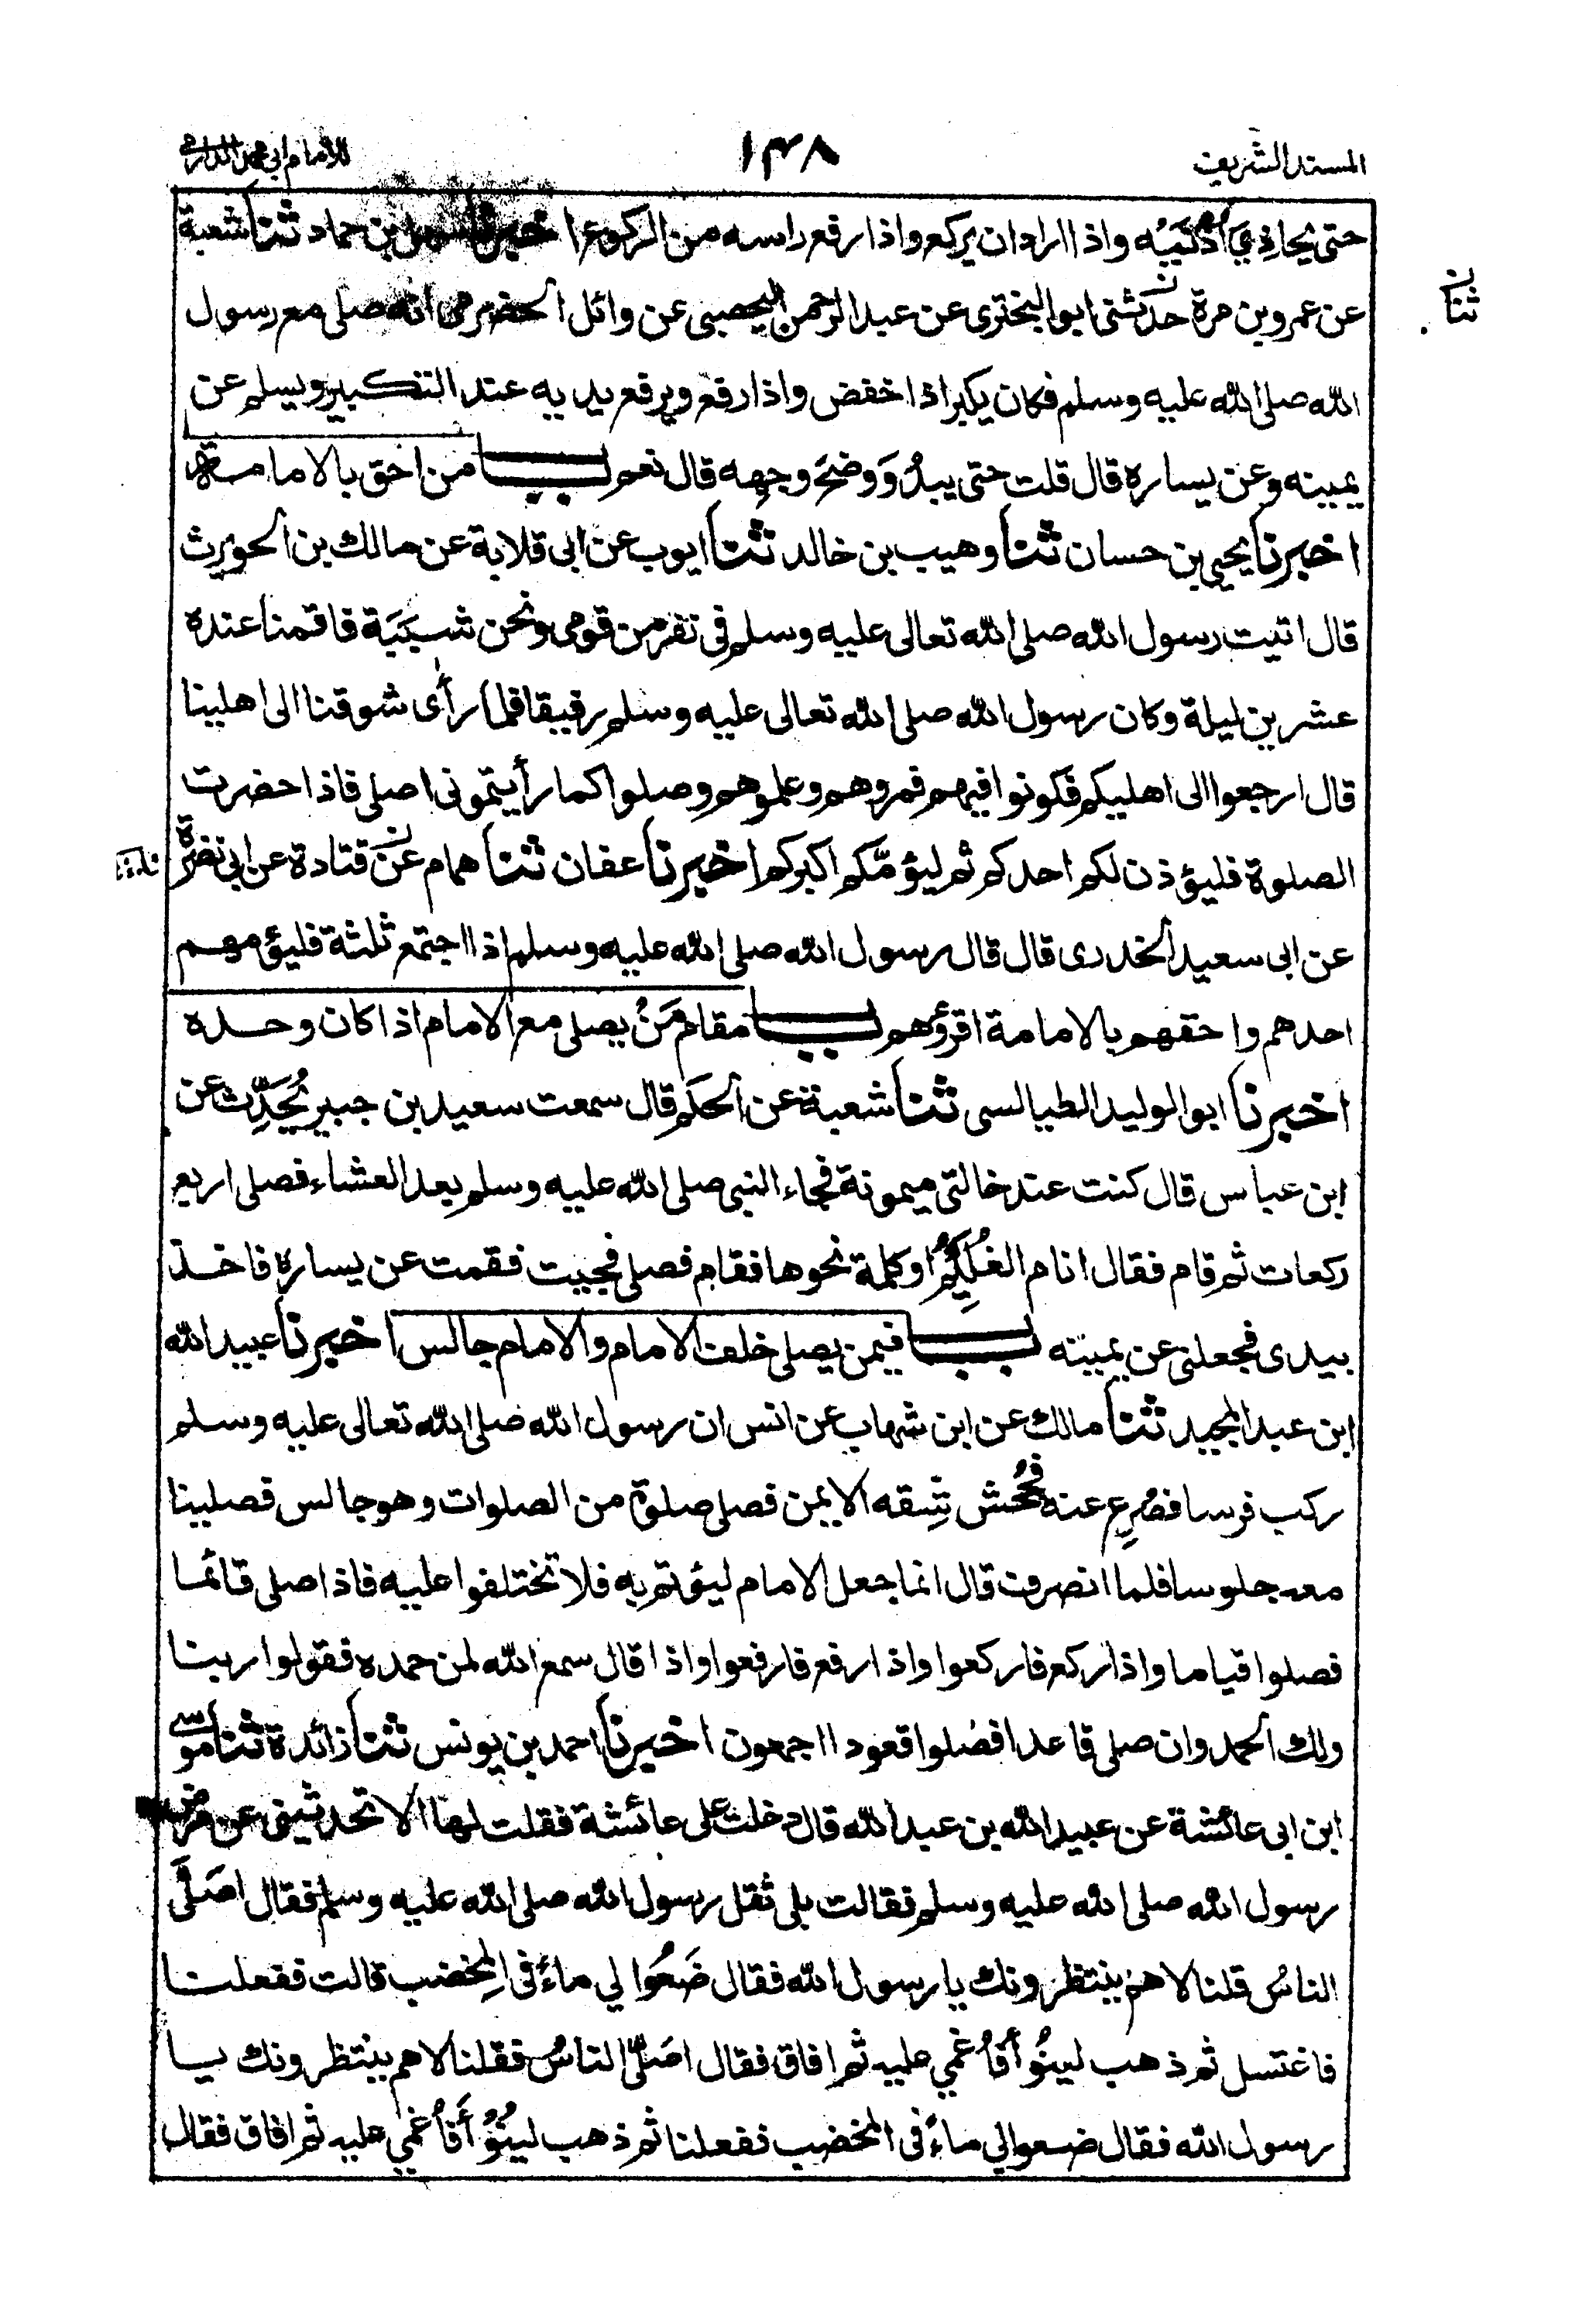 المسند الشريف ١٣٨ للامام ابي محمد الدارمي
حتى يحاذي أذنيه واذا اراد ان يركع واذا رفع راسه من الركوع اخبرنا سهل بن حماد ثنا شعبة
عن عمرو بن مرة حدثني ابو البختري عن عبد الرحمن اليحصبي عن وائل الحضرمي انه صلى مع رسول
الله صلى الله عليه وسلم فكان يكبر اذا خفض واذا رفع ويرفع يديه عند التكبير ويسلم عن
يمينه وعن يساره قال قلت حتى يبدُوَ وضَحُ وجهه قال نعم باب من احق بالامامة
اخبرنا يحيى بن حسان ثنا وهيب بن خالد ثنا ايوب عن ابي قلابة عن مالك بن الحويرث
قال اتيت رسول الله صلى الله تعالى عليه وسلم في نفر من قومي ونحن شببَة فاقمنا عنده
عشرين ليلة وكان رسول الله صلى الله تعالى عليه وسلم رفيقا فلما رأى شوقنا الى اهلينا
قال ارجعوا الى اهليكم فكونوا فيهم فمروهم وعلموهم وصلوا كما رأيتموني اصلي فاذا حضرت
الصلوة فليؤذن لكم احدكم ثم ليؤمّكم اكبركم اخبرنا عفان ثنا همام عن قتادة عن ابي نضرة
عن ابي سعيد الخدري قال قال رسول الله صلى الله عليه وسلم اذا اجتمع ثلثة فليؤمهم
احدهم واحقهم بالامامة اقرؤهم باب مقام مَنْ يصلي مع الامام اذا كان وحده
اخبرنا ابو الوليد الطيالسي ثنا شعبة عن الحكم قال سمعت سعيد بن جبير يُحَدِّث عن
ابن عباس قال كنت عند خالتي ميمونة فجاء النبي صلى الله عليه وسلم بعد العشاء فصلى اربع
ركعات ثم قام فقال انام الغُلَيِّمُ او كلمة نحوها فقام فصلى فجيت فقمت عن يساره فاخذ
بيدي فجعلني عن يمينه باب فيمن يصلي خلف الامام والامام جالس اخبرنا عبيد الله
ابن عبد المجيد ثنا مالك عن ابن شهاب عن انس ان رسول الله صلى الله تعالى عليه وسلم
ركب فرسا فصُرِع عنه فجُحش شِقه الايمن فصلى صلوة من الصلوات وهو جالس فصلينا
معه جلوسا فلما انصرف قال انما جعل الامام ليؤتم به فلا تختلفوا عليه فاذا صلى قائما
فصلوا قياما واذا ركع فاركعوا واذا رفع فارفعوا واذا قال سمع الله لمن حمده فقولوا ربنا
ولك الحمد وان صلى قاعدا فصلوا قعودا اجمعون اخبرنا احمد بن يونس ثنا زائدة ثنا موسى
ابن ابي عائشة عن عبيد الله بن عبد الله قال دخلت على عائشة فقلت لها الا تحدثيني عن مرض
رسول الله صلى الله عليه وسلم فقالت بلى ثقل رسول الله صلى الله عليه وسلم فقال اصَلَّى
الناسُ قلنا لا هم ينتظرونك يا رسول الله فقال ضَعُوا لي ماءً في المِخضب قالت ففعلنا
فاغتسل ثم ذهب لينُوأ فأُغمي عليه ثم افاق فقال اصَلَّى الناسُ فقلنا لا هم ينتظرونك يا
رسول الله فقال ضعوا لي ماءً في المخضب ففعلنا ثم ذهب لينُوأ فأُغمي عليه ثم افاق فقال
ثنا